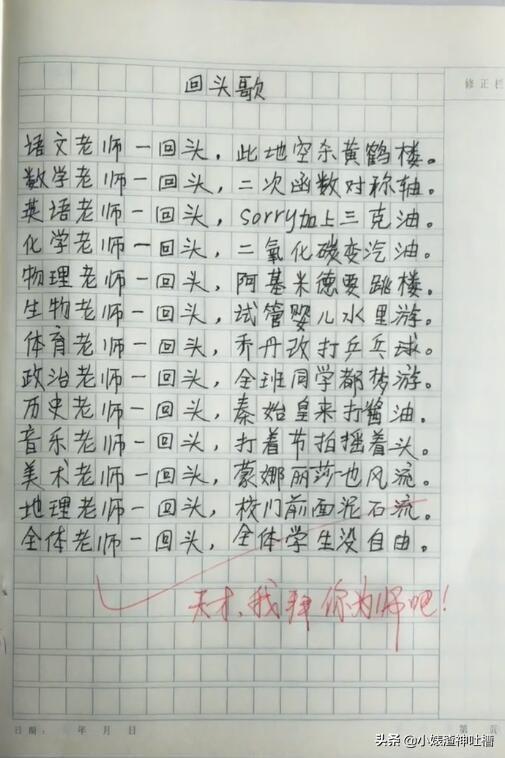 修正栏
回头歌
语文老师一回头，此地空余黄鹤楼。
数学老师一回头，二次函数对称轴。
英语老师一回头，sorry加上三克油。
化学老师一回头，二氧化碳变汽油。
物理老师一回头，阿基米德要跳楼。
生物老师一回头，试管婴儿水里游。
体育老师一回头，乔丹改打乒乓球。
政治老师一回头，全班同学都梦游。
历史老师一回头，秦始皇来打酱油。
音乐老师一回头，打着节拍摇着头。
美术老师一回头，蒙娜丽莎也风流。
地理老师一回头，校门前面泥石流。
全体老师一回头，全体学生没自由。
天才，我拜你为师吧！
日期： 年 月 日 第 页
头条 @小婊渣神吐槽